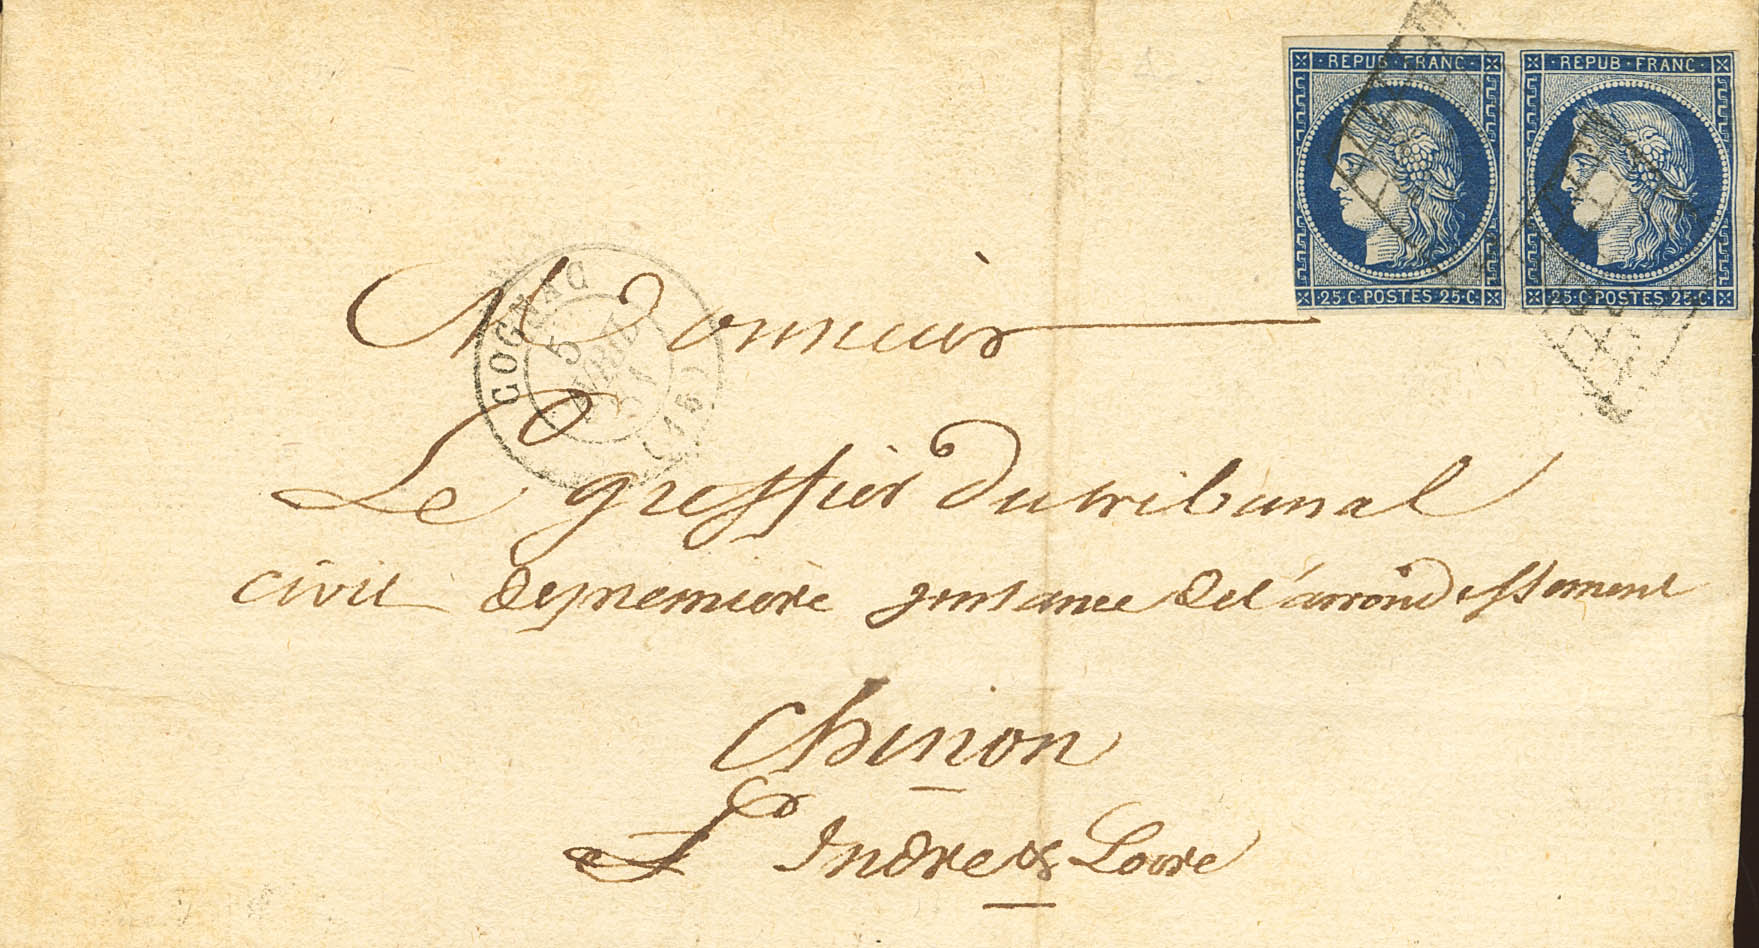 REPUB · FRANC · REPUB · FRANC ·
25 · C · POSTES 25 · C · 25 · C · POSTES 25 · C ·
COGNAC
5
AVRIL
51
(15)
Monsieur
Le greffier du tribunal
civil de premiere instance de l'arrondissement
Chinon
Indre & Loire